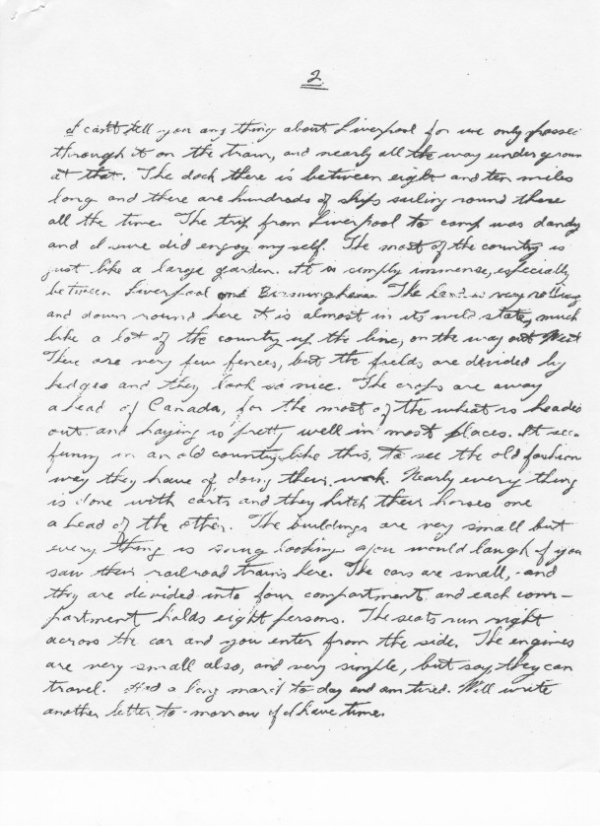 2.
I can't tell you any thing about Liverpool for we only passed
through it on the train, and nearly all the way under groun
at that. The dock there is between eight and ten miles
long and there are hundreds of ships sailing round there
all the time. The trip from Liverpool to camp was dandy
and I sure did enjoy my self. The most of the country is
just like a large garden. It is simply immense, especially
between Liverpool and Birmingham. The land is very rolling
and down round here it is almost in its wild state, much
like a lot of the country up the line, on the way out West
There are very few fences, but the fields are devided by
hedges and they look so nice. The crops are away
ahead of Canada, for the most of the wheat is headed
out and haying is pretty well in most places. It
funny in an old country like this, to see the old fashion
way they have of doing their work. Nearly every thing
is done with carts and they hitch their horses one
ahead of the other. The buildings are very small but
every thing is snug looking you would laugh if you
saw their railroad trains here. The cars are small, and
they are devided into four compartments and each com-
partment holds eight persons. The seats run right
across the car and you enter from the side. The engines
are very small also, and very simple, but say, they can
travel. Had a long march to day and am tired. Will write
another letter to-morrow if I have time.